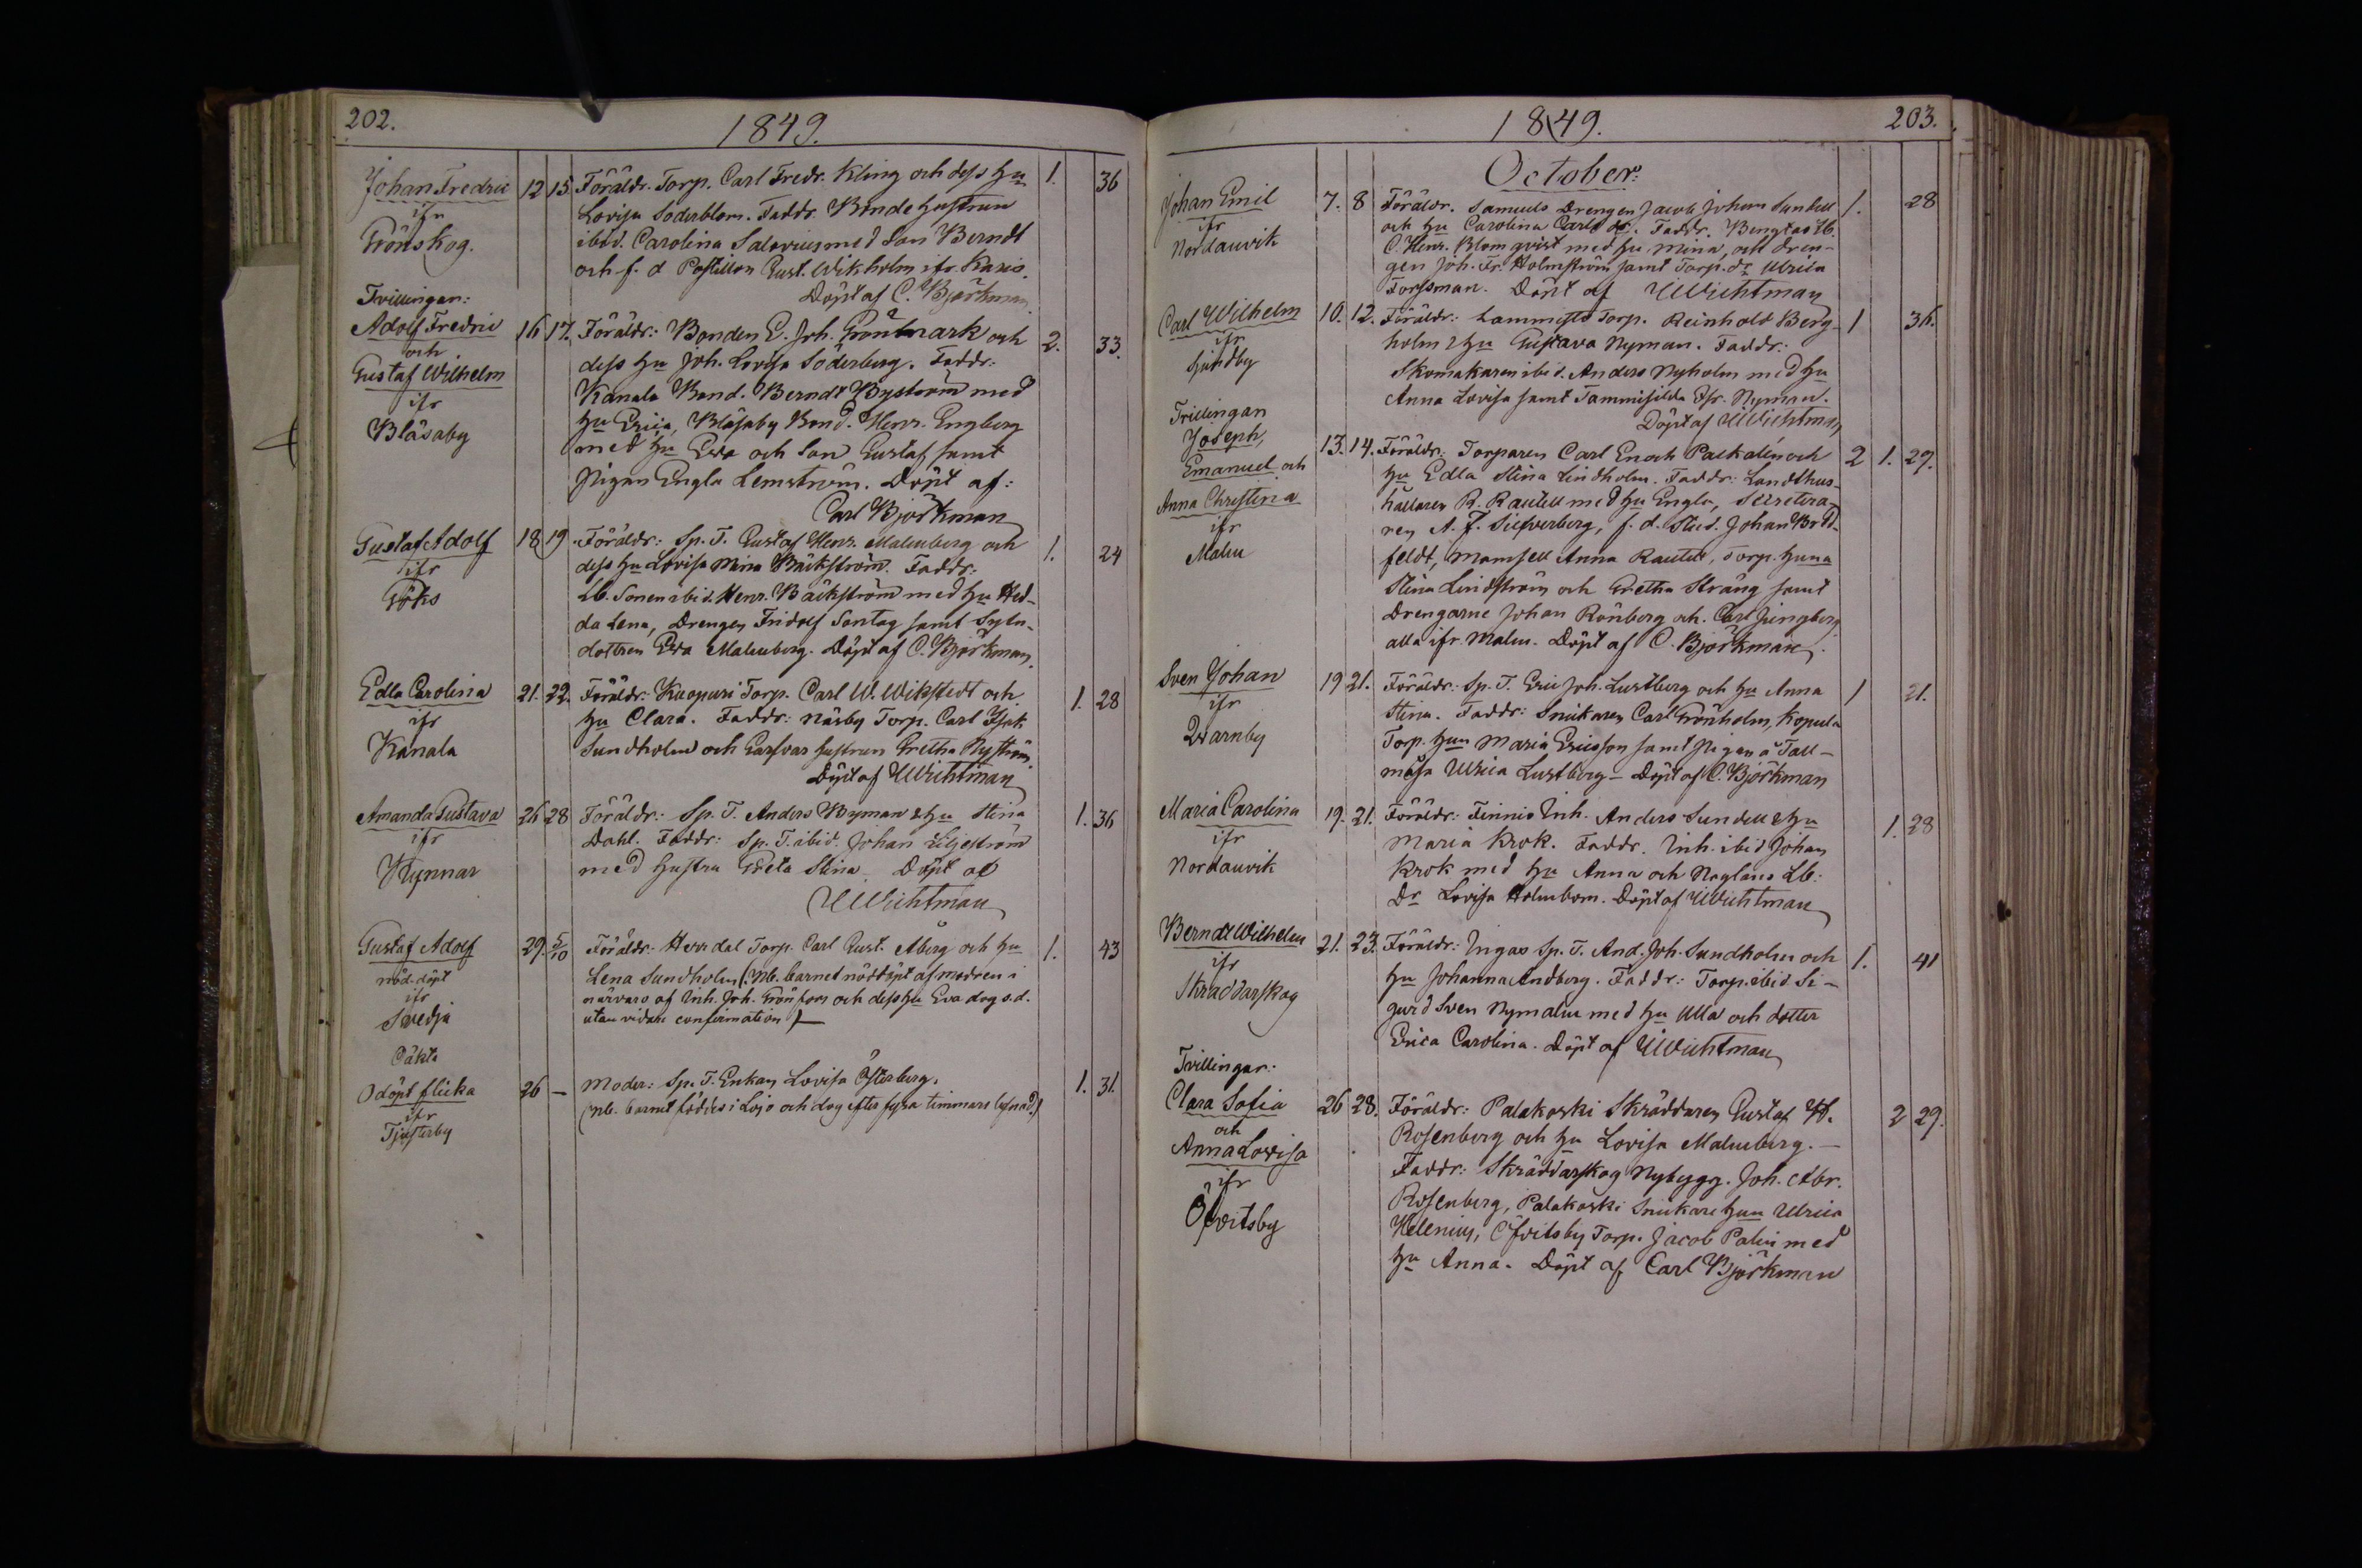 202.
1849.
Johan Fredric 12 15 Föräldr. Torp. Carl Fredr. Kling och dess hu 1. 36
ifr Lovisa Söderblom. Faddr. Bonde hustrun
Grönskog. ibid. Carolina Salovius med Son Berndt
och f. d Postillon Gust. Wikholm ifr. Karis.
Döpt af C. Björkman
Tvillingar:
Adolf Fredric 16 17. Föräldr: Bonden E. Joh. Grönmark och 2. 33.
och dess hu Joh. Lovisa Söderberg. Faddr:
Gustaf Wilhelm Kanala Bond. Berndt Byström med
ifr hu Erica, Bläsaby Bond. Henr. Engberg
Bläsaby med hu Eva och Son Gustaf samt
Pigan Engla Lemström. Döpt af:
Carl Björkman
Gustaf Adolf 18 19. Föräldr: Sp. T. Gustaf Henr. Malmberg och 1. 24
ifr dess hu Lovisa Mina Bäckström. Faddr:
Göks Lb. Sonen ibid. Henr. Bäckström med hu Hed-
da Lena, Drengen Fridolf Sontag samt Sytn.
dottren Eva Malmberg. Döpt af C. Björkman.
Edla Carolina 21. 22. Föräldr: Kuopuri Torp. Carl W. Wikstedt och 1. 28
ifr hu Clara. Faddr: Näsby Torp. Carl Isak
Kanala Sundholm och Garfvar hustrun Gretha Nyström.
Döpt af UWichtman
Amanda Gustava 26 28 Föräldr: Sp. T. Anders Nyman & hu Stina 1. 36
ifr Dahl. Faddr: Sp. T. ibid. Johan Liljeström
Kynnar med hustru Greta Stina. Döpt af
UWichtman
Gustaf Adolf 29. 5/10 Föräldr: Herrdal Torp. Carl Gust. Åberg och hu 1. 43
nöd-döpt Lena Sundholm (Nb. barnet nöddöpt af modren i
ifr närvaro af Inh. Joh. Grönfors och dess hu Eva dog s.d.
Svedja utan vidare confirmation)
Oäkta
Odöpt flicka 26 — Moder: Sp. T. Enkan Lovisa Österberg. 1. 31.
ifr (Nb. barnet föddes i Lojo och dog efter fyra timmars lefnad.)
Tjusterby
1849. 203.
October.
Johan Emil 7. 8 Föräldr. Samuels Drengen Jacob Johan Sundell 1. 28
ifr och hu Carolina Carls dr. Faddr. Bengtas lb.
Nordanvik C. Henr. Blomqvist med hu Mina, och dren-
gen Joh. Fr. Holmström samt Torp. dr Ulrica
Forssman. Döpt af UWichtman
Carl Wilhelm 10. 12. Föräldr: Torp. Reinhold Berg- 1 36.
ifr holm & hu Gustava Nyman. Faddr:
Sundby Skomakaren ibid. Anders Nyholm med hu
Anna Lovisa samt Nyman.
Döpt af UWichtman
Trillingar
Joseph, 13. 14. Föräldr: Torparen Carl Enoch Packalén och 2 1. 29.
Emanuel och hu Edla Stina Lindholm. Faddr: Landthus-
Anna Christina hållaren R. Rautell med hu Engla, Secretera-
ifr ren A. F. Silfverberg, f. d. Stud. Johan
Malm feldt, Mamsell Anna Rautell, Torp. huna
Stina Lindström och Gretha Sträng samt
Drengarne Johan Rönberg och Carl Ljungberg
alla ifr. Malm. Döpt af C. Björkman.
Sven Johan 19 21. Föräldr: Sp. T. Eric Joh. Lustberg och hu Anna 1 21.
ifr Stina. Faddr: Snickaren Carl Grönholm, Kopula
Qvarnby Torp. hun Maria Ericsson samt Pigan å Tall-
måsa Ulrica Lustberg – Döpt af C. Björkman
Maria Carolina 19. 21. Föräldr: Finnis Inh. Anders Sundell & hu 1. 28
ifr Maria Krok. Faddr. Inh. ibid Johan
Nordanvik Krok med hu Anna och Lb:
Dr Lovisa Holmbom. Döpt af UWichtman
Berndt Wilhelm 21. 23. Föräldr: Ingas Sp. T. And. Joh. Sundholm och 1. 41
ifr hu Johanna Lindberg. Faddr: Torp. ibid. Si-
Skräddarskog gurd Sven Nymalm med hu Ulla och dotter
Erica Carolina. Döpt af UWichtman
Tvillingar:
Clara Sofia 26 28. Föräldr: Palakoski Skräddaren Gustaf W. 2 29.
och Rosenberg och hu Lovisa Malmberg. —
Anna Lovisa Faddr: Skräddarskog Nybygg. Joh. Abr.
ifr Rosenberg, Palakoski Snickare hun Ulrica
Öfvitsby Helenius, Öfvitsby Torp. Jacob Palm med
hu Anna. Döpt af Carl Björkman